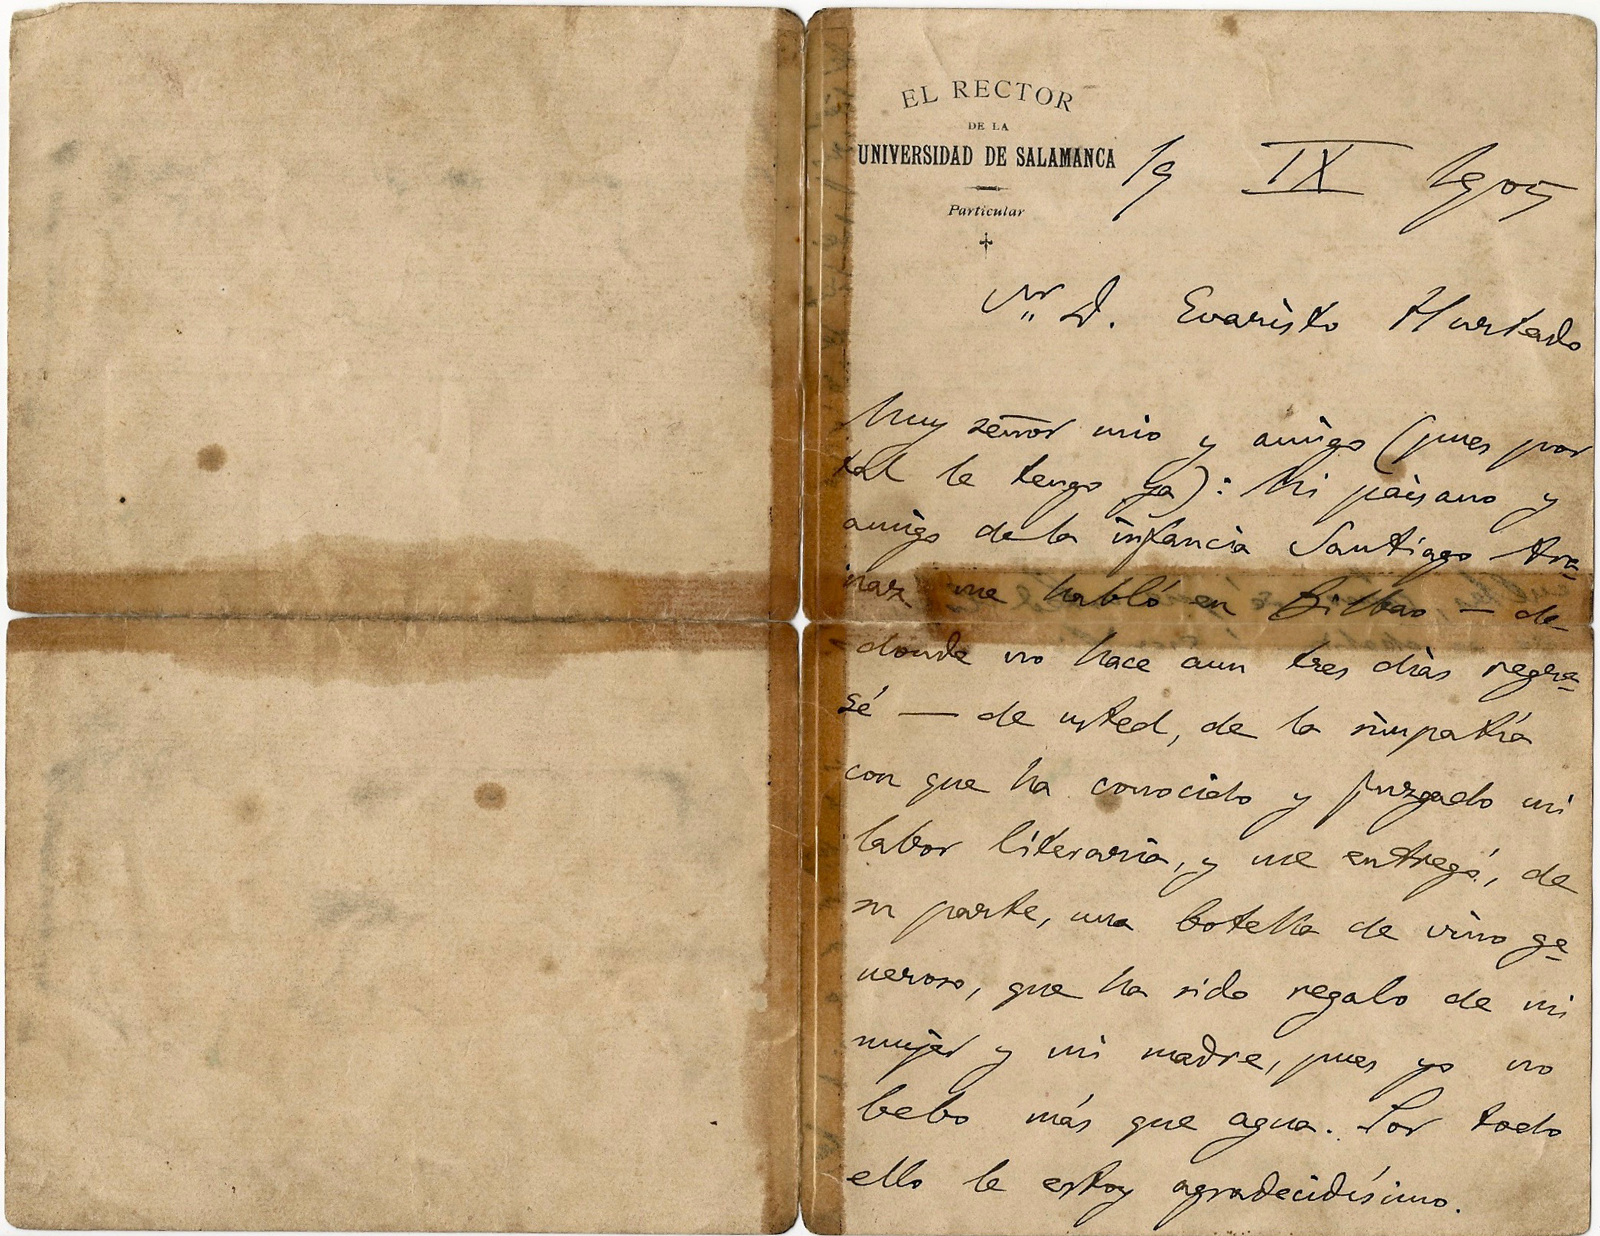 EL RECTOR
DE LA
UNIVERSIDAD DE SALAMANCA
Particular
19 IX 1905
Sr. D. Evaristo Hurtado
Muy señor mio y amigo (pues por
tal le tengo ya): Mi paisano y
amigo de la infancia Santiago Ara-
naz me habló en Bilbao — de
donde no hace aun tres dias regre-
sé — de usted, de la simpatía
con que ha conocido y juzgado mi
labor literaria, y me entregó, de
su parte, una botella de vino ge-
neroso, que ha sido regalo de mi
mujer y mi madre, pues yo no
bebo más que agua. Por todo
ello le estoy agradecidísimo.